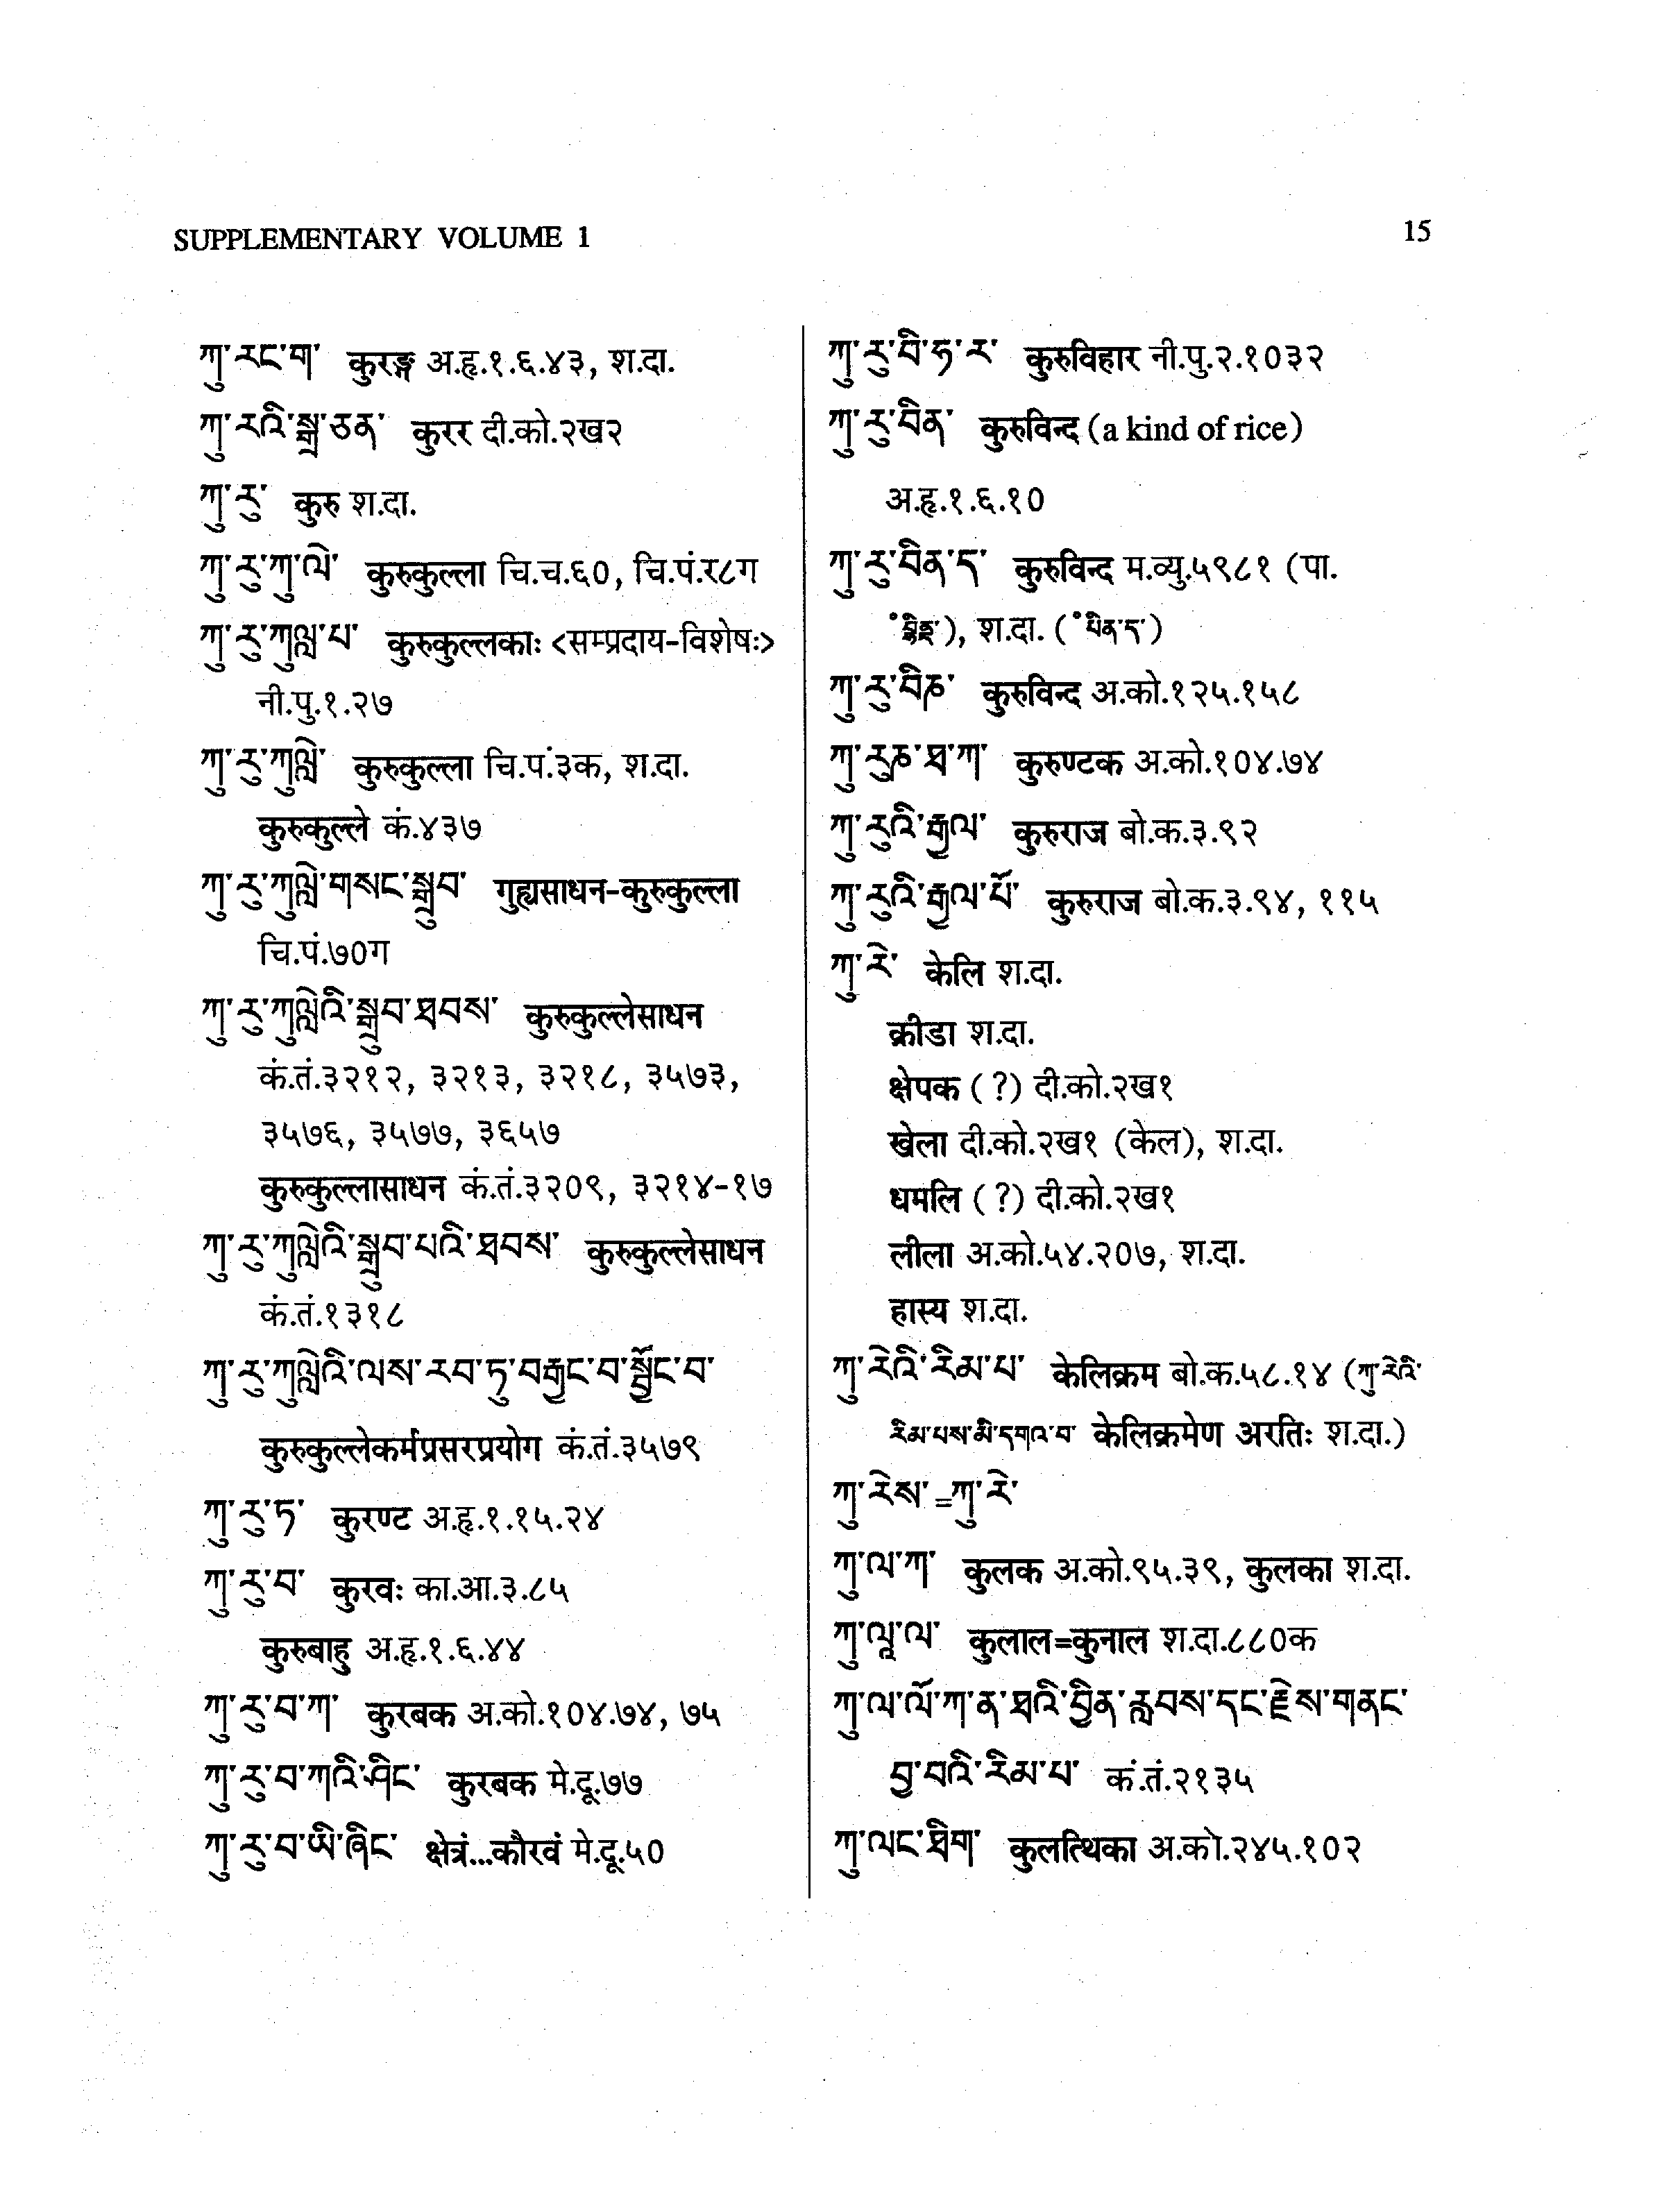 SUPPLEMENTARY VOLUME 1
15
ཀུ་རང་ག་ कुरङ्ग अ.हृ.१.६.४३, श.दा.
ཀུ་རའི་སྒྲ་ཅན་ कुरर दी.को.२ख२
ཀུ་རུ་ कुरु श.दा.
ཀུ་རུ་ཀུ་ལེ་ कुरुकुल्ला चि.च.६०, चि.पं.र८ग
ཀུ་རུ་ཀུལླ་པ་ कुरुकुल्लकाः <सम्प्रदाय-विशेषः>
नी.पु.१.२७
ཀུ་རུ་ཀུལླེ་ कुरुकुल्ला चि.पं.३क, श.दा.
कुरुकुल्ले कं.४३७
ཀུ་རུ་ཀུལླེ་གསང་སྒྲུབ་ गुह्यसाधन-कुरुकुल्ला
चि.पं.७०ग
ཀུ་རུ་ཀུལླེའི་སྒྲུབ་ཐབས་ कुरुकुल्लेसाधन
कं.तं.३२१२, ३२१३, ३२१८, ३५७३,
३५७६, ३५७७, ३६५७
कुरुकुल्लासाधन कं.तं.३२०९, ३२१४-१७
ཀུ་རུ་ཀུལླེའི་སྒྲུབ་པའི་ཐབས་ कुरुकुल्लेसाधन
कं.तं.१३१८
ཀུ་རུ་ཀུལླེའི་ལས་རབ་ཏུ་བརྒྱང་བ་སྦྱོང་བ་
कुरुकुल्लेकर्मप्रसरप्रयोग कं.तं.३५७९
ཀུ་རུ་ཏ་ कुरण्ट अ.हृ.१.१५.२४
ཀུ་རུ་བ་ कुरवः का.आ.३.८५
कुरुबाहु अ.हृ.१.६.४४
ཀུ་རུ་བ་ཀ་ कुरबक अ.को.१०४.७४, ७५
ཀུ་རུ་བ་ཀའི་ཤིང་ कुरबक मे.दू.७७
ཀུ་རུ་བ་ཡི་ཞིང་ क्षेत्रं...कौरवं मे.दू.५०
ཀུ་རུ་བི་ཧ་ར་ कुरुविहार नी.पु.२.१०३२
ཀུ་རུ་བིན་ कुरुविन्द (a kind of rice)
अ.हृ.१.६.१०
ཀུ་རུ་བིན་ད་ कुरुविन्द म.व्यु.५९८१ (पा.
), श.दा. (॰པིན་ད་)
ཀུ་རུ་བིཎ་ कुरुविन्द अ.को.१२५.१५८
ཀུ་རུཎ་ཐ་ཀ་ कुरुण्टक अ.को.१०४.७४
ཀུ་རུའི་རྒྱལ་ कुरुराज बो.क.३.९२
ཀུ་རུའི་རྒྱལ་པོ་ कुरुराज बो.क.३.९४, ११५
ཀུ་རེ་ केलि श.दा.
क्रीडा श.दा.
क्षेपक (?) दी.को.२ख१
खेला दी.को.२ख१ (केल), श.दा.
धमलि (?) दी.को.२ख१
लीला अ.को.५४.२०७, श.दा.
हास्य श.दा.
ཀུ་རེའི་རིམ་པ་ केलिक्रम बो.क.५८.१४ (ཀུ་རེའི་
རིམ་པས་མི་དགའ་བ་ केलिक्रमेण अरतिः श.दा.)
ཀུ་རེས་=ཀུ་རེ་
ཀུ་ལ་ཀ་ कुलक अ.को.९५.३९, कुलका श.दा.
ཀུ་ལཱ་ལ་ कुलाल=कुनाल श.दा.८८०क
ཀུ་ལ་ལོ་ཀ་ན་ཐའི་བྱིན་རླབས་དང་རྗེས་གནང་
བྱ་བའི་རིམ་པ་ कं.तं.२१३५
ཀུ་ལང་ཐིག་ कुलत्थिका अ.को.२४५.१०२